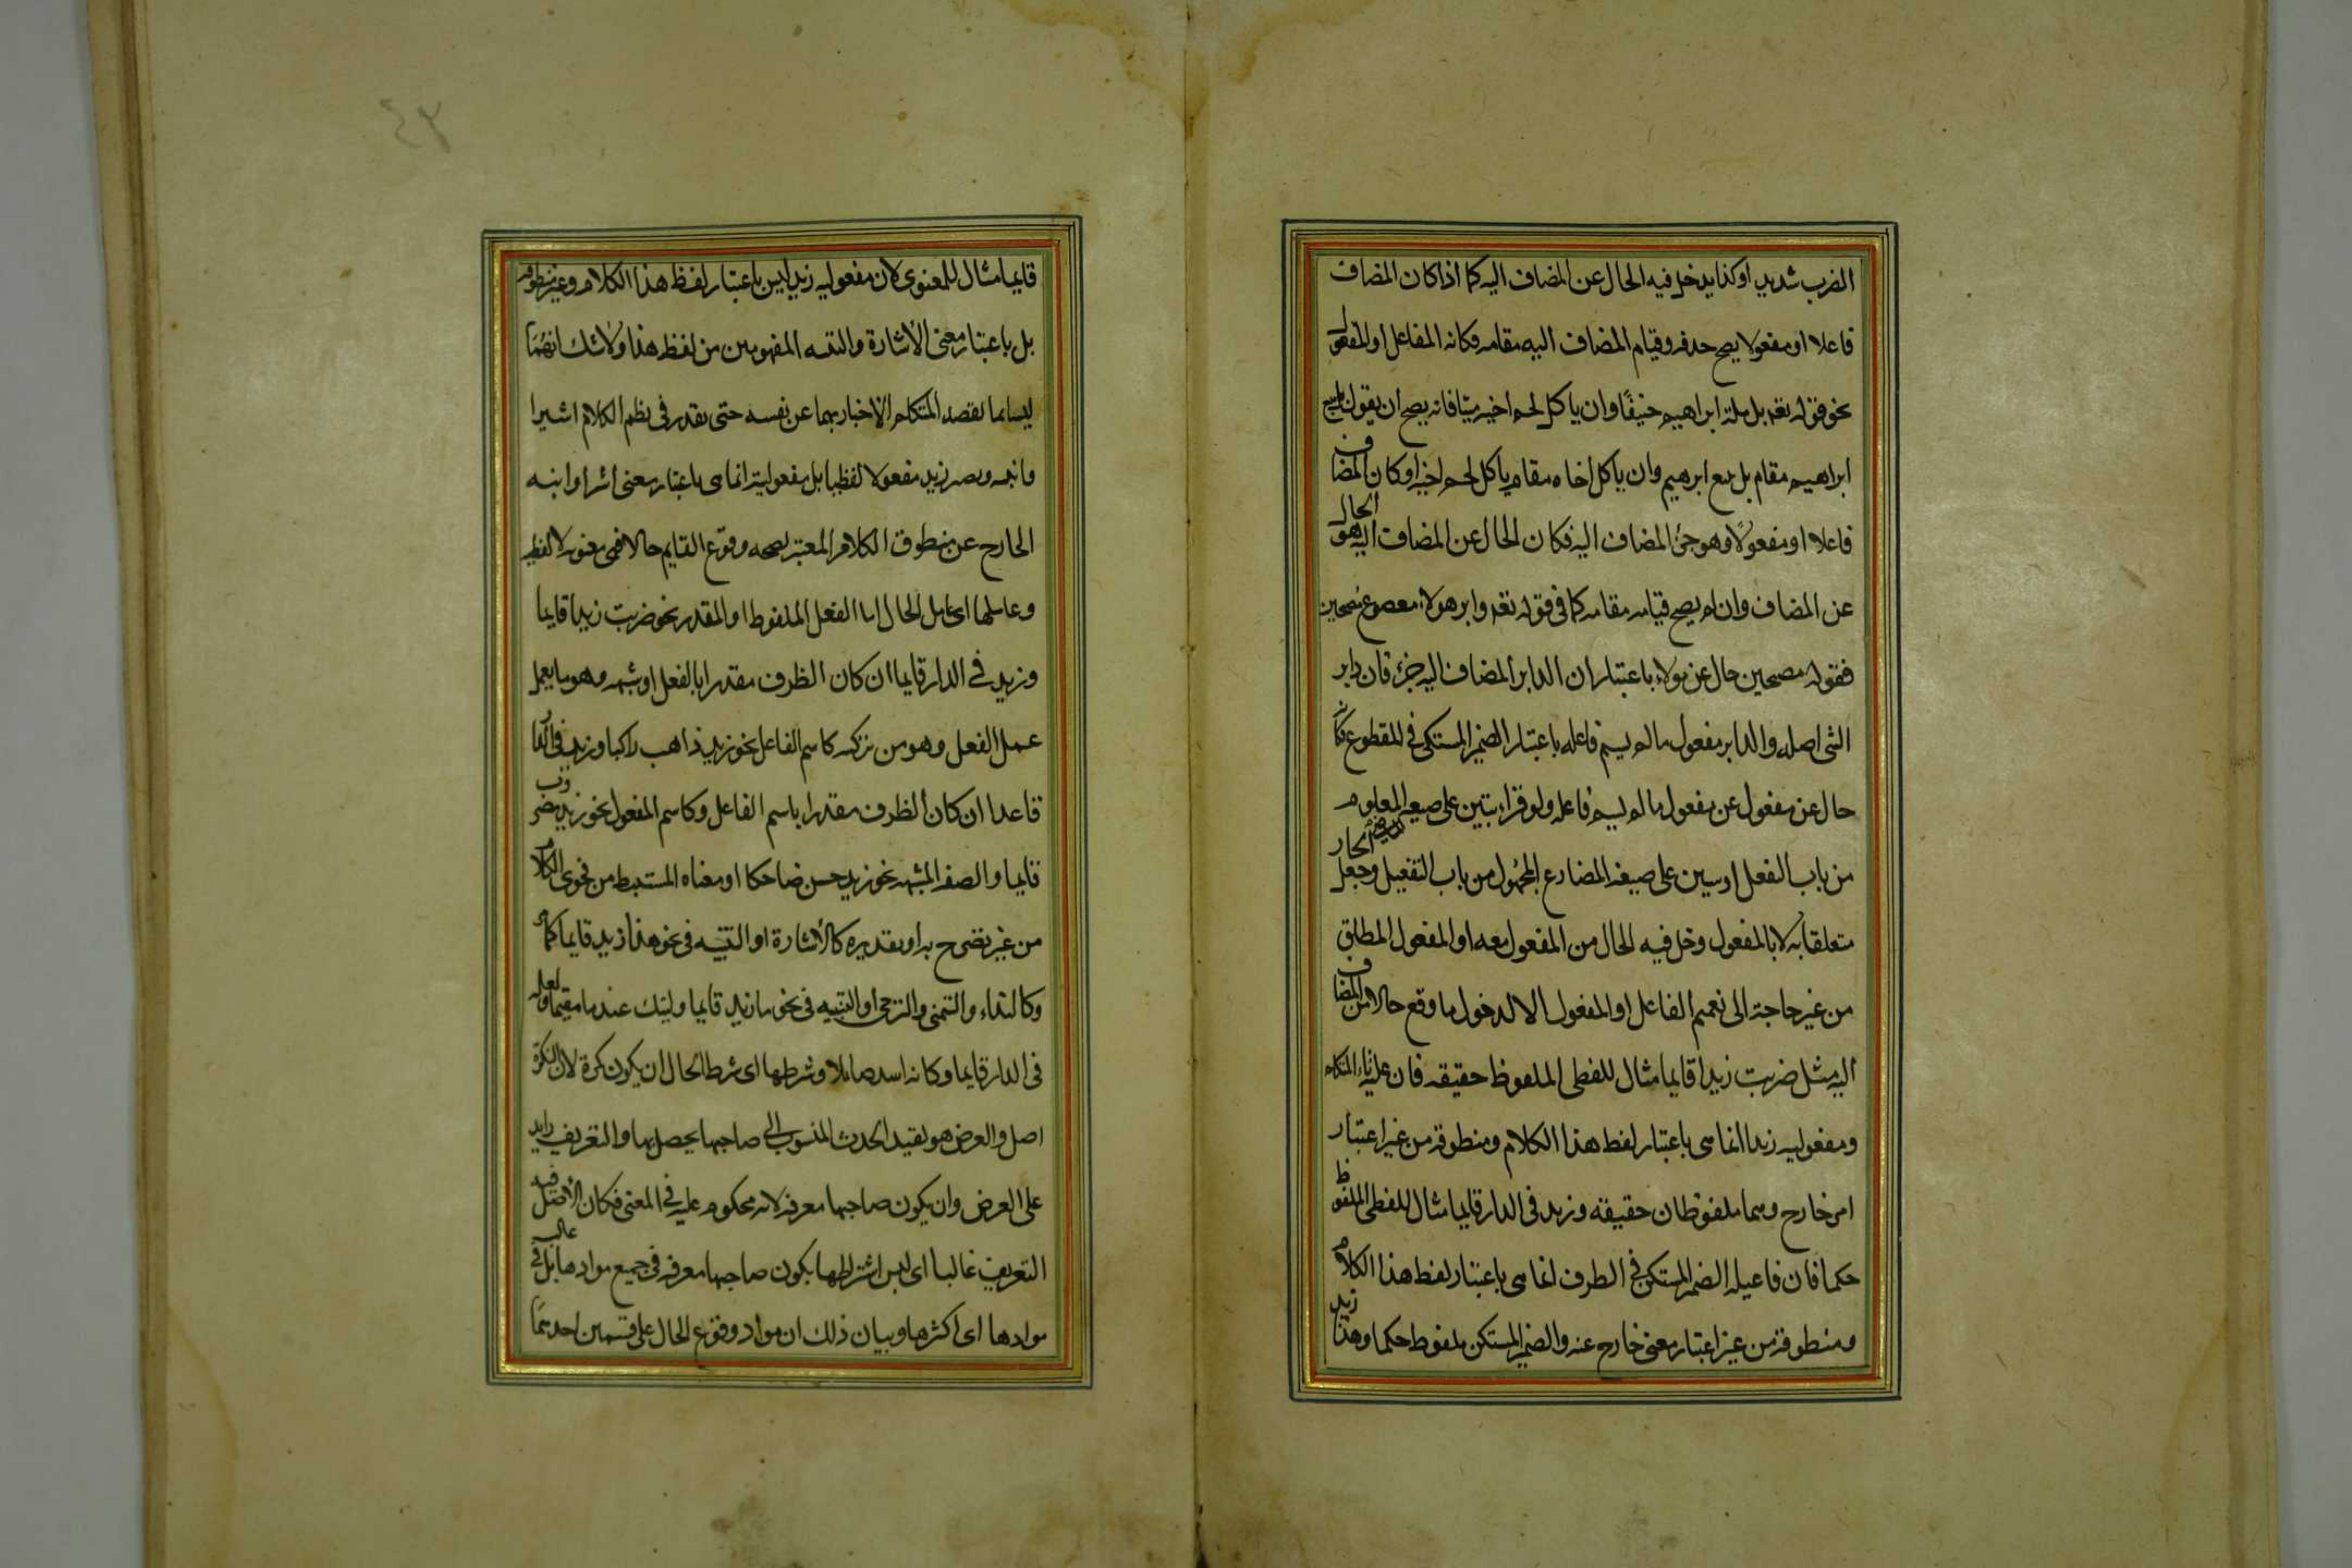 الضرب شديد او كذا يدخل فيه الحال عن المضاف اليه كما اذا كان المضاف
فاعلا او مفعولا يصح حذفه وقيام المضاف اليه مقامه فكانه الفاعل او المفعول
نحو قوله تعه بل ملة ابراهيم حنيفًا وان ياكل لحم اخيه ميتا فانه يصح ان يقول بل نتبع
ابراهيم مقام بل نتبع ابرهيم وان ياكل اخاه مقام ياكل لحم اخيه او كان المضاف
فاعلا او مفعولًا وهو جزؤ المضاف اليه فكان الحال عن المضاف اليه هو الحال
عن المضاف وان لم يصح قيامه مقامه كما فى قوله تعه دابر هولاء مقطوع مصبحين
فقوله مصبحين حال عن هولاء باعتبار ان الدابر المضاف اليه جزء فان دابر
الشى اصله والدابر مفعول ما لم يسم فاعله باعتبار الضمير المستكن فى المقطوع فكانه
حال عن مفعول عن مفعول ما لم يسم فاعله ولو قراء تبين على صيغه المعلوم
من باب التفعل او يبين على صيغة المضارع المجهول من باب التفعيل وجعل الجار
متعلقا به لا بالمفعول دخل فيه الحال من المفعول معه او المفعول المطلق
من غير حاجة الى تعميم الفاعل او المفعول الا لدخول ما وقع حالا من المضاف
اليه مثل ضربت زيدا قايما مثال للفظى الملفوظ حقيقه فان تاء المتكلم
ومفعوليه زيدا انما هى باعتبار لفظ هذا الكلام ومنطوقه من غير اعتبار
امر خارج وهما ملفوظان حقيقه وزيد فى الدار قايما مثال للفظى الملفوظ
حكما فان فاعيله الضمير المستكن فى الظرف انما هى باعتبار لفظ هذا الكلام
ومنطوقه من غير اعتبار معنى خارج عنه والضمير المستكن ملفوظ حكما وهذا زيد
قايما مثال للمعنوى لان مفعوليه زيد ليس باعتبار لفظ هذا الكلام وغير منطوقه
بل باعتبار معنى الاشارة والتنبيه المفهومين من لفظ هذا ولا شك انهما
ليسا مما يقصد المتكلم الاخبار بهما عن نفسه حتى يقدر فى نظم الكلام اشير
وانبه ويصير زيد مفعولا لفظيا بل مفعوليته انما هى باعتبار معنى اشير او انبه
الخارج عن منطوق الكلام المعتبر لصحه وقوع القايم حالا فهى معنويه لا لفظيه
وعاملها اى عامل الحال اما الفعل الملفوظ او المقدر نحو ضربت زيدا قايما
وزيد فى الدار قايما ان كان الظرف مقدرا بالفعل او شبهه وهو ما يعمل
عمل الفعل وهو من تركيبه كاسم الفاعل نحو زيد ذاهب راكبا وزيد فى الدار
قاعدا ان كان الظرف مقدرا باسم الفاعل وكاسم المفعول نحو زيد مضروب
قايما والصفه المشبهه نحو زيد حسن ضاحكا او معناه المستنبط من فحوى الكلام
من غير تصريح به او بتقديره كالاشارة او التنبيه فى نحو هذا زيد قايما كما مر
وكالنداء والتمنى والترجى او التنبيه فى نحو يا زيد قايما وليتك عندنا مقيما ولعله
فى الدار قايما وكانه اسد صايلا وشرطها اى شرط الحال ان يكون نكرة لان النكرة
اصل والغرض هو تقييد الحدث المنسوب الى صاحبها يحصل بها والتعريف زايد
على الغرض وان يكون صاحبها معرفه لانه محكوم عليه فى المعنى فكان الاصل فيه
التعريف غالبا اى ليس اشتراطها بكون صاحبها معرفه فى جميع موادها بل فى غالب
موادها اى اكثرها وبيان ذلك ان مواد وقوع الحال على قسمين احدهما